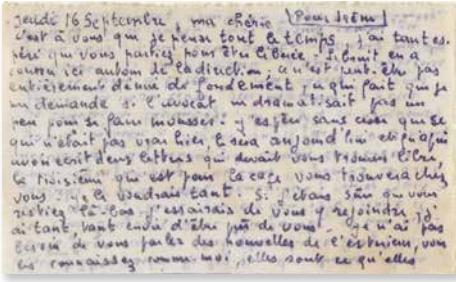 Jeudi 16 Septembre, ma chérie [Pour Irène]
c'est à vous que je pense tout le temps, j'ai tant es-
péré que vous partiez pour être libérée. Le bruit en a
couru ici autour de la direction. ce n'est peut-être pas
entièrement dénué de fondement, ce qui fait que je
me demande si l'avocat ne dramatisait pas un
peu pour se faire mousser. J'espère sans cesse que ce
qui n'était pas vrai hier, le sera aujourd'hui et qu'après
avoir écrit deux lettres qui devait vous trouver libre,
la troisième qui est pour la cage vous trouvera chez
vous. Je le voudrais tant. Si j'étais sûr que vous
restiez là-bas j'essairais de vous y rejoindre, j'
ai tant, tant envie d'être près de vous. Je n'ai pas
besoin de vous parler des nouvelles de l'extérieur, vous
les connaissez comme moi, elles sont ce qu'elles